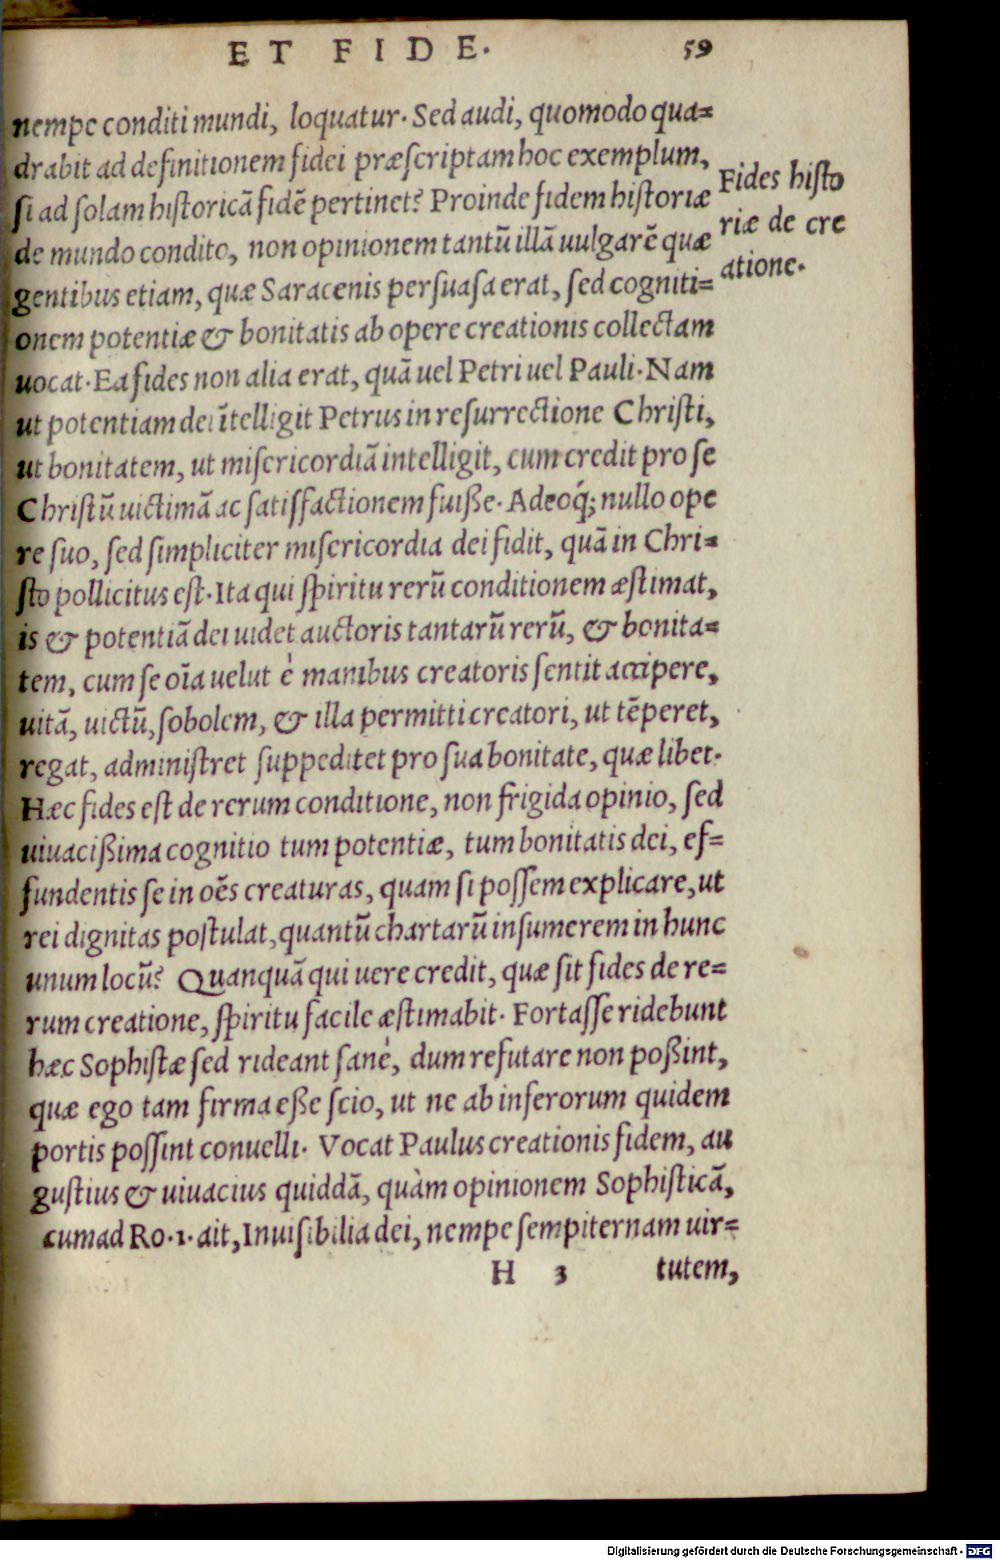 ET FIDE.
59
nempe conditi mundi, loquatur. Sed audi, quomodo qua=
drabit ad definitionem fidei præscriptam hoc exemplum,
si ad solam historicã fidẽ pertinet? Proinde fidem historiæ
de mundo condito, non opinionem tantũ illã uulgarẽ quæ
gentibus etiam, quæ Saracenis persuasa erat, sed cogniti=
onem potentiæ & bonitatis ab opere creationis collectam
uocat. Ea fides non alia erat, quã uel Petri uel Pauli. Nam
ut potentiam dei ĩtelligit Petrus in resurrectione Christi,
ut bonitatem, ut misericordiã intelligit, cum credit pro se
Christũ uictimã ac satisfactionem fuiße. Adeoq́; nullo ope
re suo, sed simpliciter misericordia dei fidit, quã in Chri=
sto pollicitus est. Ita qui spiritu rerũ conditionem æstimat,
is & potentiã dei uidet auctoris tantarũ rerũ, & bonita=
tem, cum se oĩa uelut è manibus creatoris sentit accipere,
uitã, uictũ, sobolem, & illa permitti creatori, ut tẽperet,
regat, administret suppeditet pro sua bonitate, quæ libet.
Hæc fides est de rerum conditione, non frigida opinio, sed
uiuacißima cognitio tum potentiæ, tum bonitatis dei, ef=
fundentis se in oẽs creaturas, quam si possem explicare, ut
rei dignitas postulat, quantũ chartarũ insumerem in hunc
unum locũ? Quanquã qui uere credit, quæ sit fides de re=
rum creatione, spiritu facile æstimabit. Fortasse ridebunt
hæc Sophistæ sed rideant sanè, dum refutare non poßint,
quæ ego tam firma eße scio, ut ne ab inferorum quidem
portis possint conuelli. Vocat Paulus creationis fidem, au
gustius & uiuacius quiddã, quàm opinionem Sophisticã,
cum ad Ro.1. ait, Inuisibilia dei, nempe sempiternam uir=
H 3 tutem,
Fides histo
riæ de cre
atione.
Digitalisierung gefördert durch die Deutsche Forschungsgemeinschaft - DFG